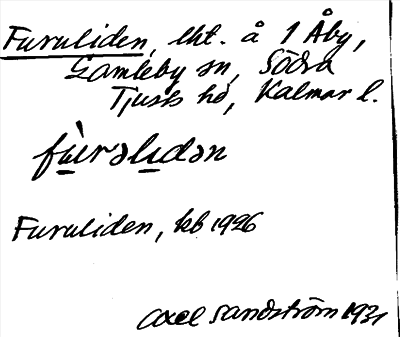 Furuliden, lht. å 1 Åby,
Gamleby sn, Södra
Tjusts hd, Kalmar l.
fùrəlıdən
Furuliden, kb 1926
Axel Sandström 1931